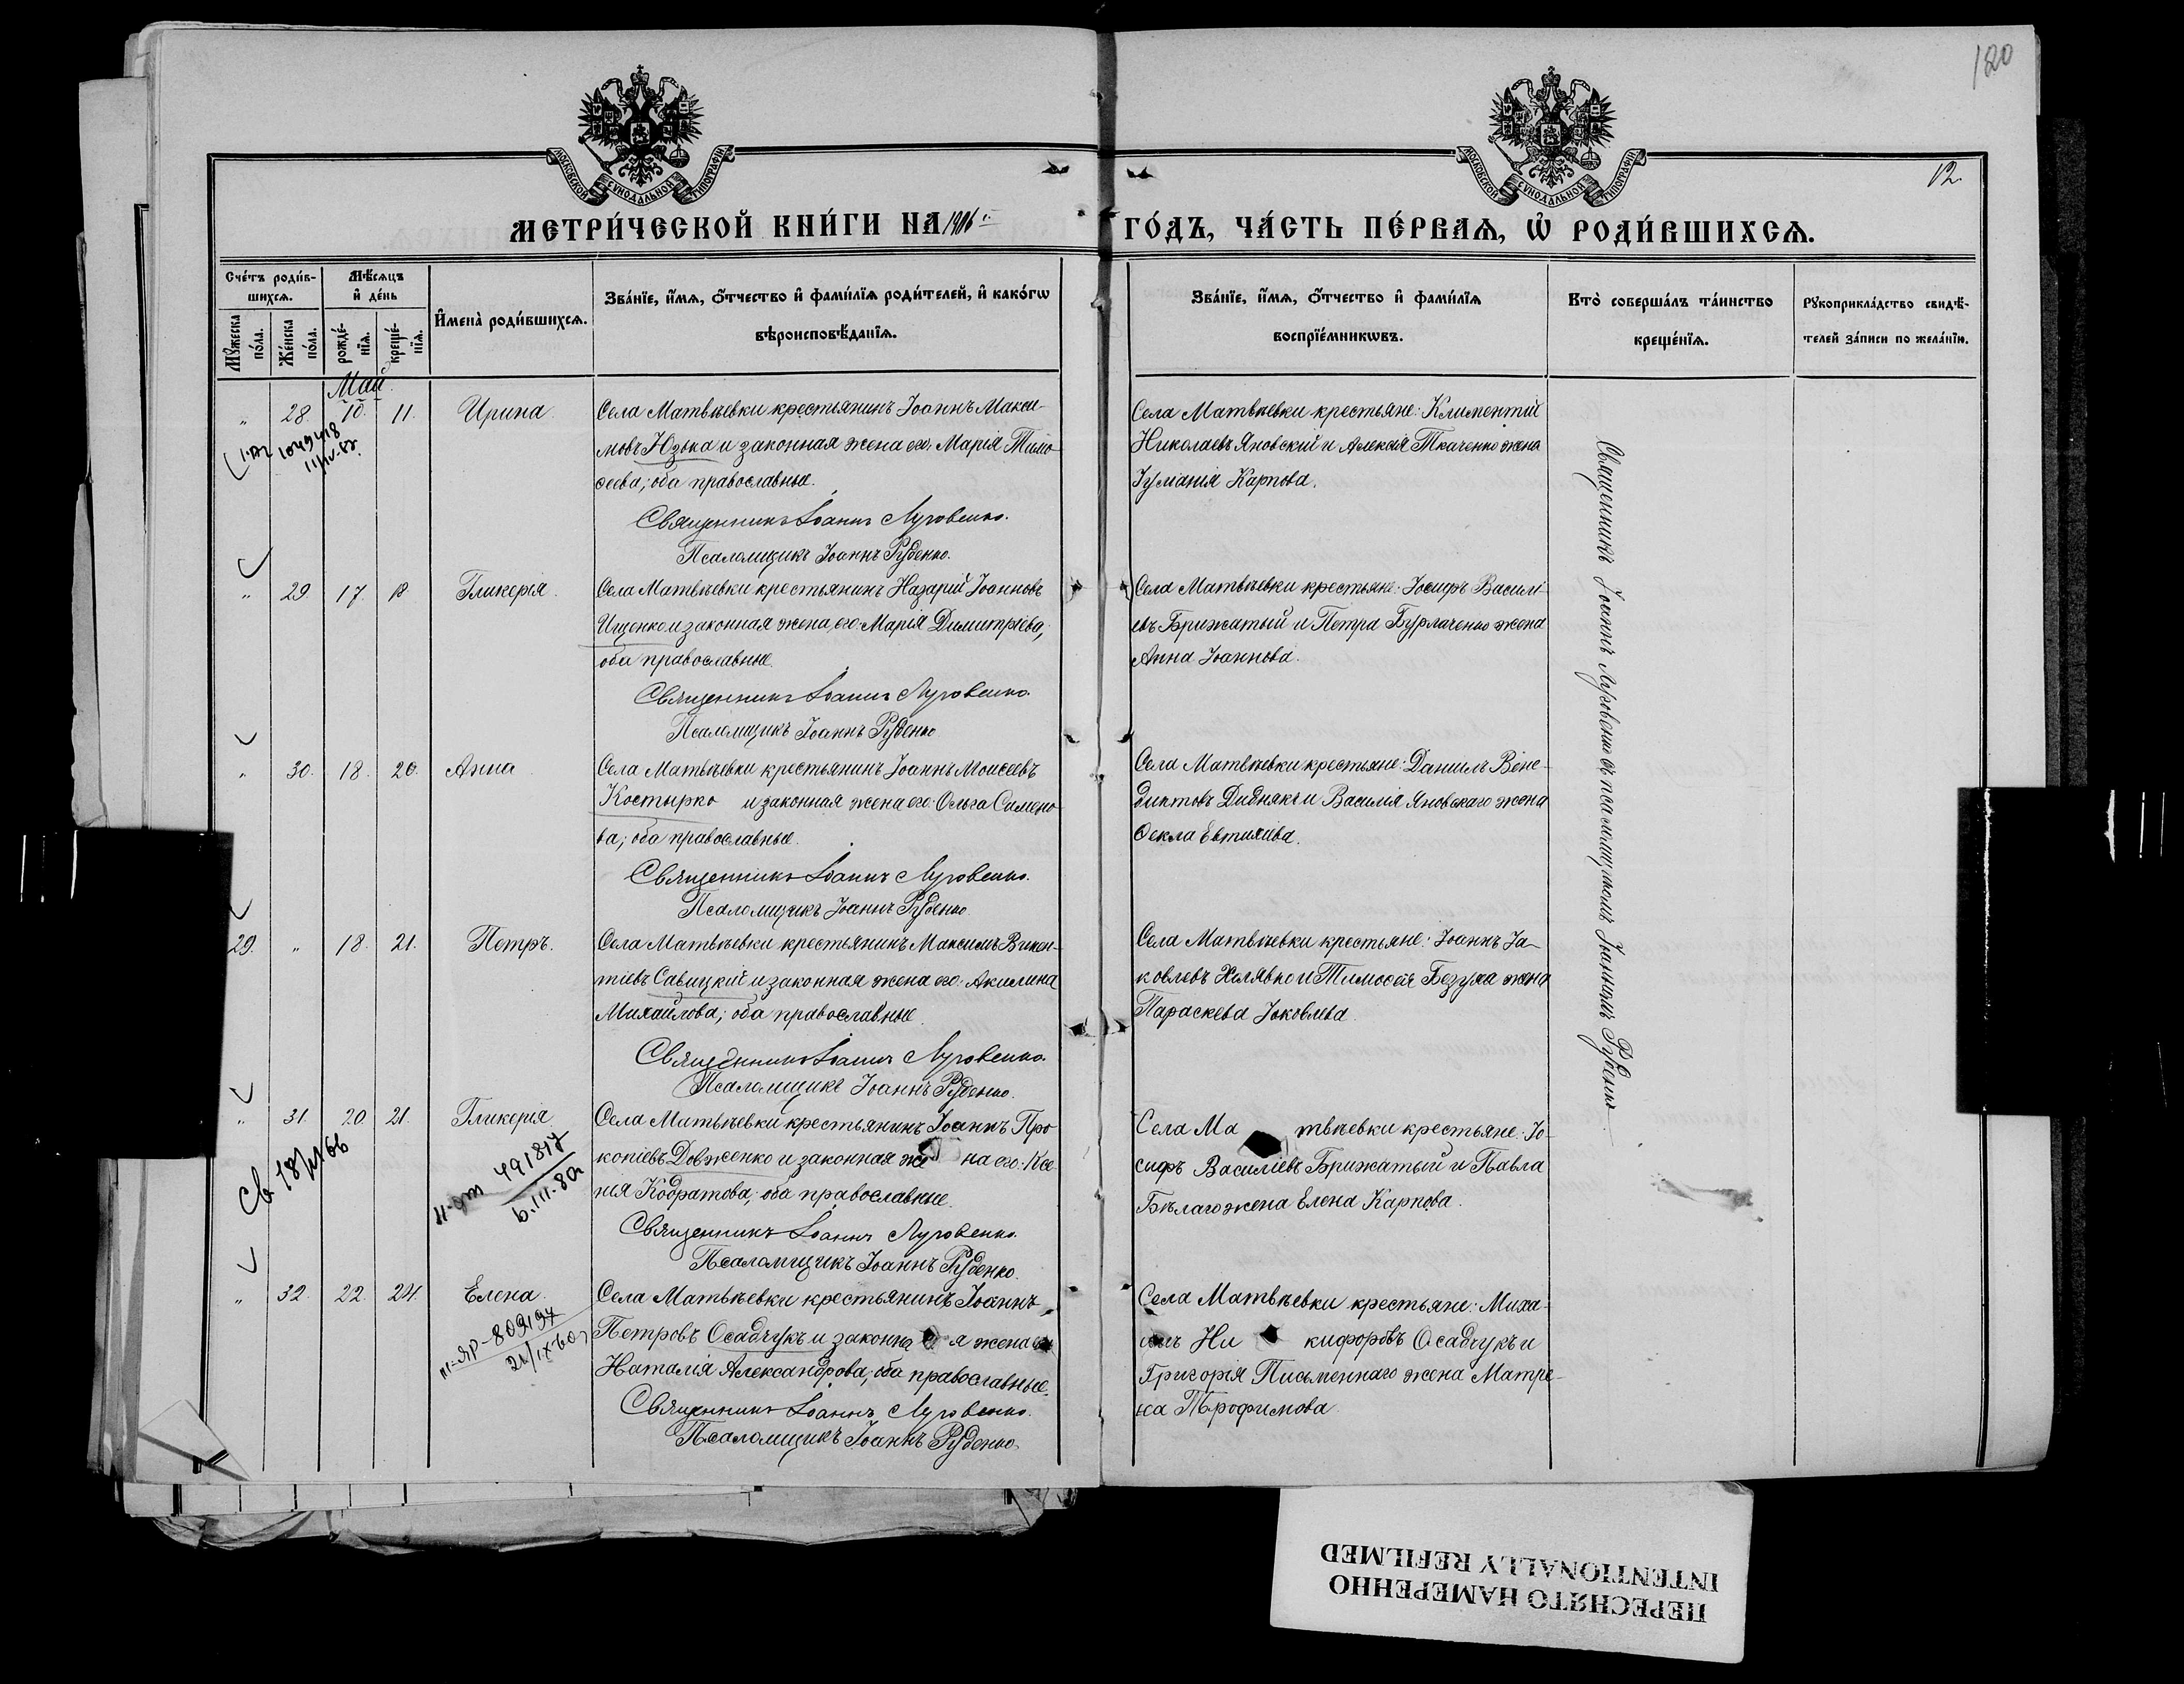 180
12.
МОСКОВСКОЙ СѴНОДАЛЬНОЙ ТИПОГРАФІИ
МОСКОВСКОЙ СѴНОДАЛЬНОЙ ТИПОГРАФІИ
МЕТРИ́ЧЕСКОЙ КНИ́ГИ НА 1906 й ГО́ДЪ, ЧА́СТЬ ПЕ́РВАѦ, Ѡ҆ РОДИ́ВШИХСѦ.
Сче́тъ роди́в-
шихсѧ.
Мꙋ́жеска по́ла.
Же́нска по́ла.
Мѣ́сѧцъ и҆ де́нь
рожде́-
нїѧ.
креще́-
нїѧ.
И҆мена̀ роди́вшихсѧ.
Зва́нїе, и҆́мѧ, ѻ҆́тчество и҆ фами́лїѧ роди́телей, и҆ како́гѡ
вѣроисповѣ́данїѧ.
Зва́нїе, и҆́мѧ, ѻ҆́тчество и҆ фами́лїѧ
воспрїе́мникѡвъ.
Кто̀ соверша́лъ та́инство
креще́нїѧ.
Рꙋкоприкла́дство свидѣ́-
телей за́писи по жела́нїю.
Май.
„ 28. 10. 11. Ирина.
Села Матвѣевки крестьянинъ Іоаннъ Макси-
мовъ Юзька и законная жена его: Марія Тимо-
ѳеева; оба православные.
Священникъ Іоаннъ Луговенко.
Псаломщикъ Іоаннъ Руденко.
Села Матвѣевки крестьяне: Климентій
Николаевъ Яновскій и Алексія Ткаченко жена
Іуліанія Карпова.
„ 29. 17. 18. Гликерія.
Села Матвѣевки крестьянинъ Назарій Іоанновъ
Ищенко и законная жена его: Марія Димитріева;
оба православные.
Священникъ Іоаннъ Луговенко.
Псаломщикъ Іоаннъ Руденко
Села Матвѣевки крестьяне: Іосифъ Василі-
евъ Брижатый и Петра Бурлаченко жена
Анна Іоаннова.
„ 30. 18. 20. Анна
Села Матвѣевки крестьянинъ Іоаннъ Моисеевъ
Костырко и законная жена его: Ольга Симено-
ва; оба православные.
Священникъ Іоаннъ Луговенко.
Псаломщикъ Іоаннъ Руденко
Села Матвѣевки крестьяне: Даниилъ Вене-
диктовъ Дивнякъ и Василія Яновскаго жена
Ѳекла Евтихіева.
29. „ 18. 21. Петръ.
Села Матвѣевки крестьянинъ Максимъ Викен-
тіевъ Савицкій и законная жена его: Акилина
Михайлова; оба православные.
Священникъ Іоаннъ Луговенко.
Псаломщикъ Іоаннъ Руденко.
Села Матвѣевки крестьяне: Іоаннъ Іа-
ковлевъ Халявко и Тимоѳея Безуха жена
Параскева Іаковлева.
„ 31. 20. 21. Гликерія
Села Матвѣевки крестьянинъ Іоаннъ Про-
копіевъ Довженко и законная жена его: Ксе-
нія Кодратова; оба православные.
Священникъ Іоаннъ Луговенко.
Псаломщикъ Іоаннъ Руденко.
Села Матвѣевки крестьяне: Іо-
сифъ Василіевъ Брижатый и Павла
Бѣлаго жена Елена Карпова.
491847
6.III.80
„ 32. 22. 24. Елена.
Села Матвѣевки крестьянинъ Іоаннъ
Петровъ Осадчукъ и законная жена его
Наталія Александрова; оба православные.
Священникъ Іоаннъ Луговенко.
Псаломщикъ Іоаннъ Руденко.
Села Матвѣевки крестьяне: Миха-
илъ Никифоровъ Осадчукъ и
Григорія Письменнаго жена Матре-
на Трофимова.
III-ЯР-809197
21/IX-60
Священникъ Іоаннъ Луговенко съ псаломщикомъ Іоанномъ Руденко
ПЕРЕСНЯТО НАМЕРЕННО
INTENTIONALLY REFILMED